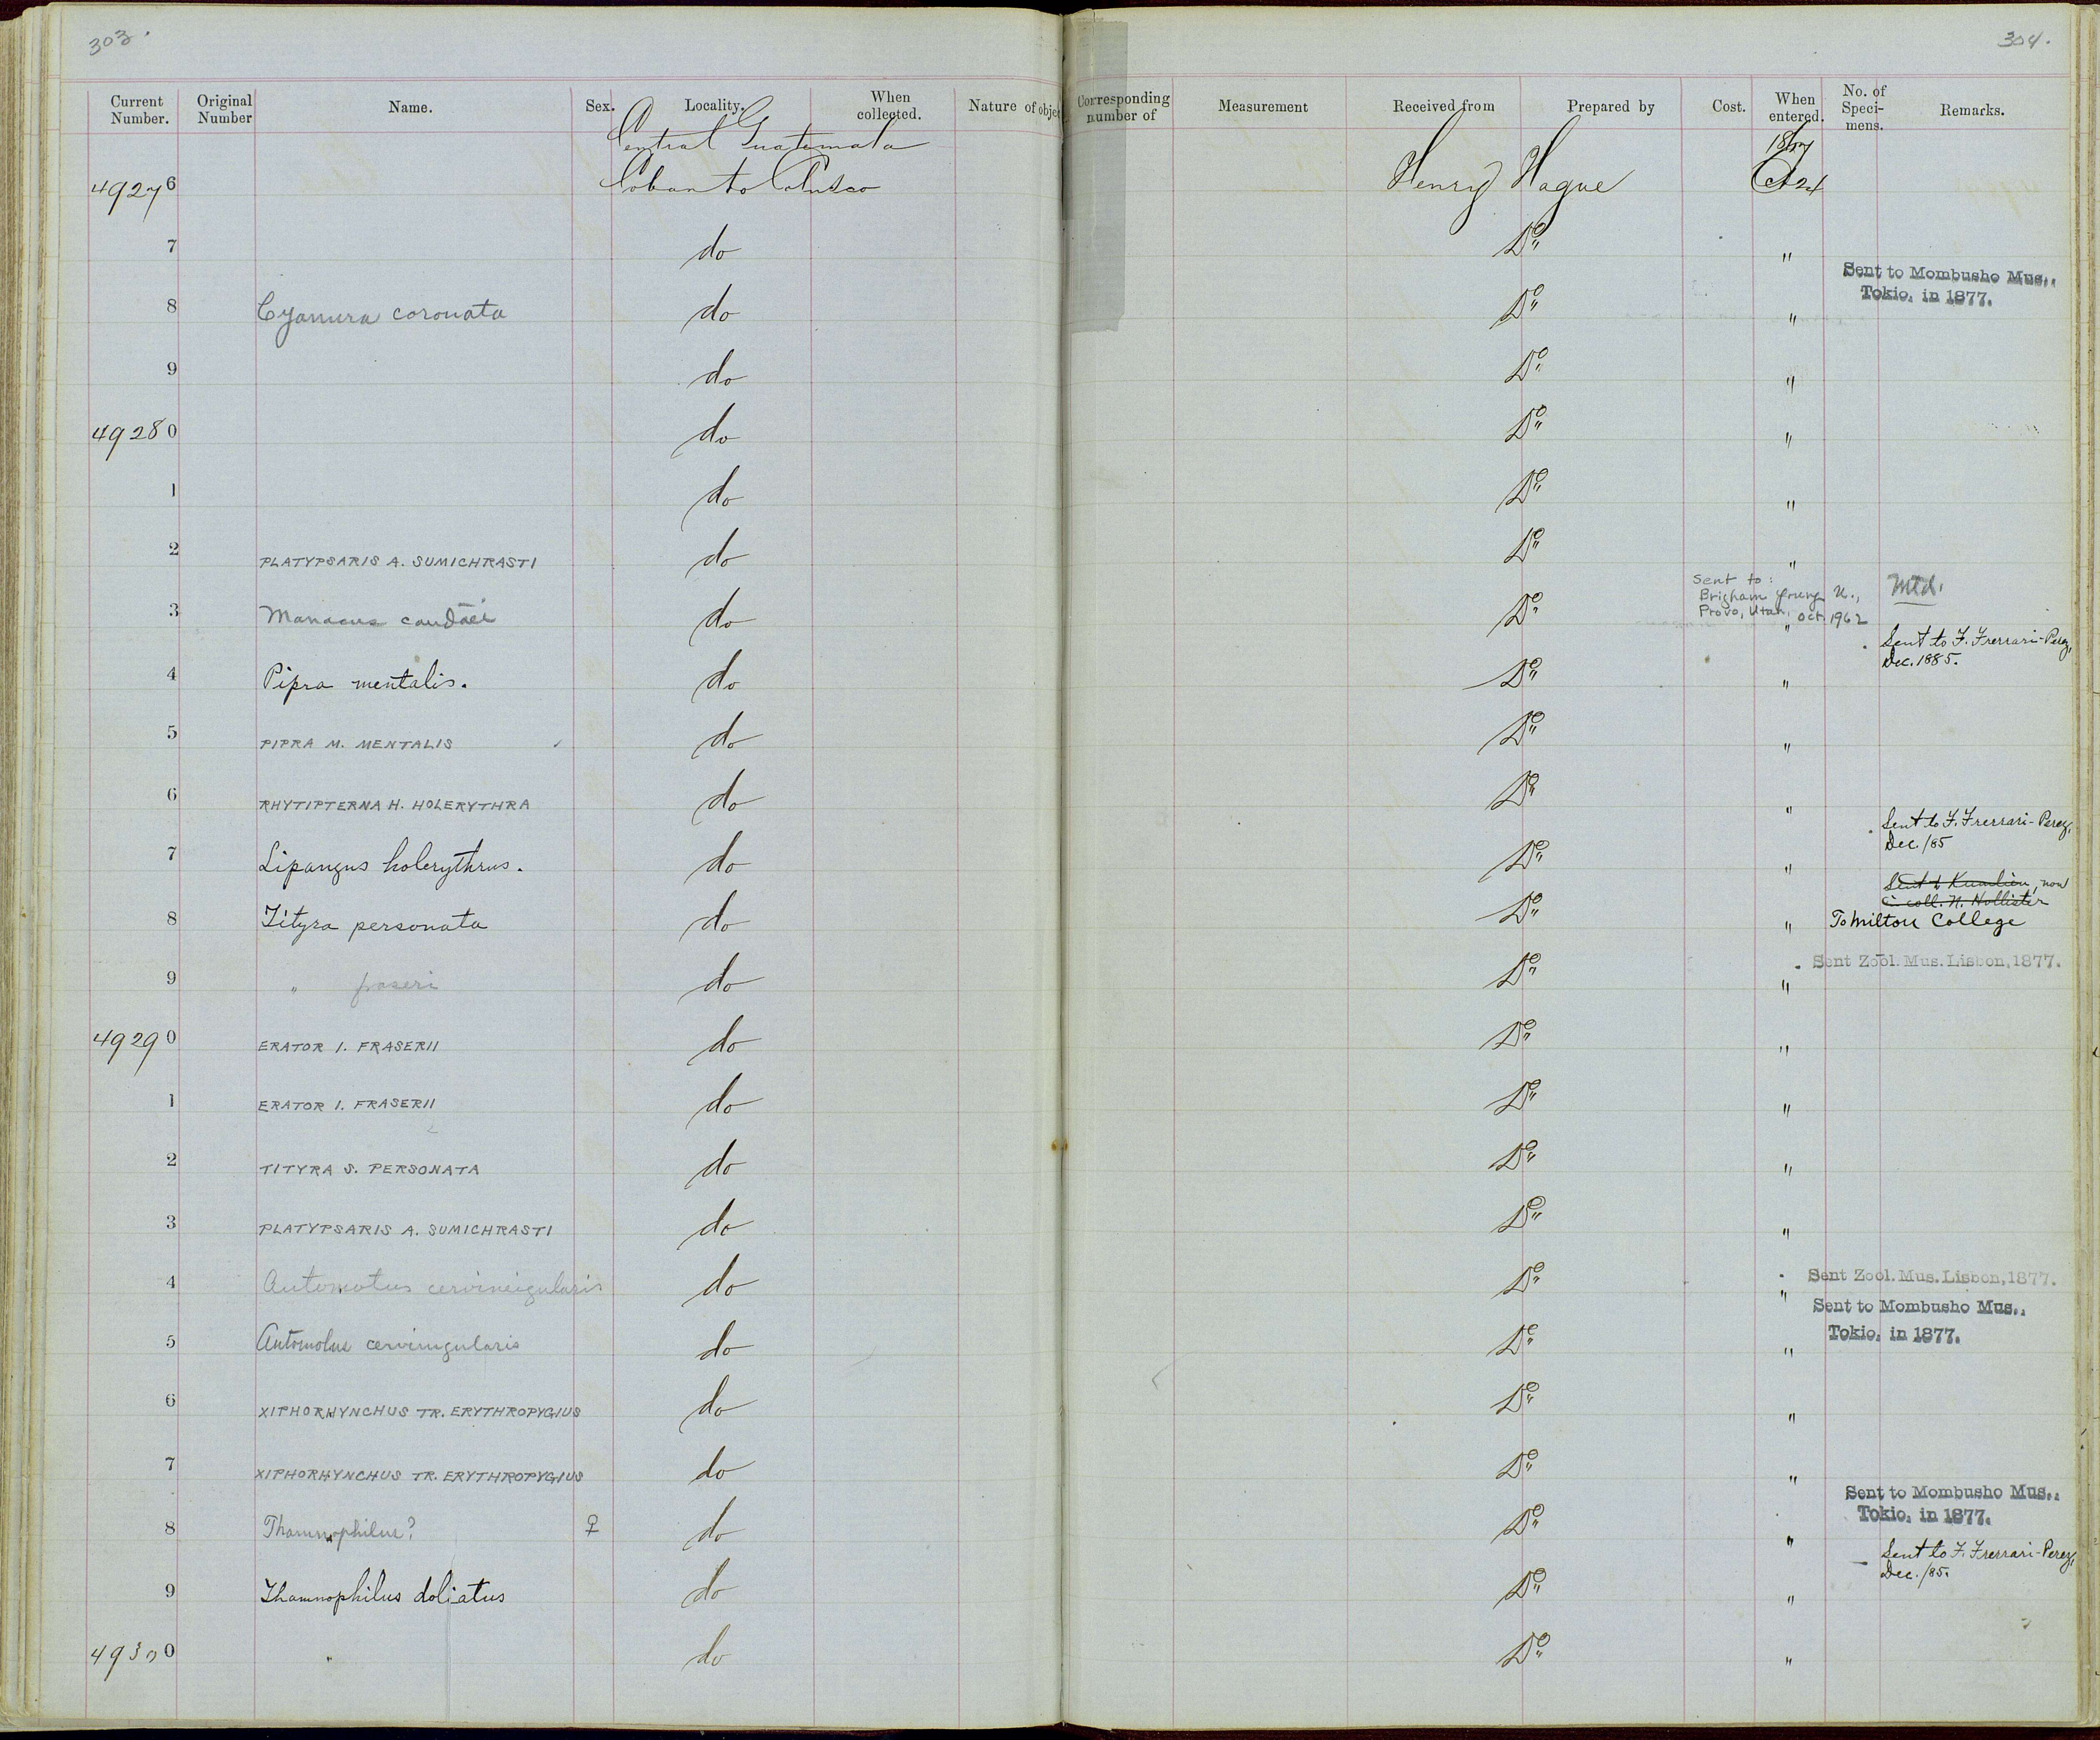 303.
304.
Current Number. Original Number Name. Sex. Locality. When collected. Nature of objec Corresponding number of Measurement Received from Prepared by Cost. When entered. No. of Speci-mens. Remarks.
Central Guatemala 1867
49276 Coban to Henry Hague Oct 24
7 do Do "
Sent to Mombusho Mus., Tokio, in 1877.
8 Cyanura coronata do Do "
9 do Do "
49280 do Do "
1 do Do "
2 PLATYPSARIS A. SUMICHRASTI do Do "
Sent to: Brigham Young U., Provo, Utah, Oct. 1962 Mtd.
3 Manacus candaei do Do "
Sent to F. Frerrari-Perez, Dec. 1885.
4 Pipra mentalis. do Do "
5 PIPRA M. MENTALIS do Do "
6 RHYTIPTERNA H. HOLERYTHRA do Do "
Sent to F. Frerrari-Perez, Dec. /85
7 Lipangus holerythrus. do Do "
Sent to Kumlien, now in coll. N. Hollister
8 Tityra personata do Do " To Milton College
Sent Zool. Mus. Lisbon, 1877.
9 " fraseri do Do "
49290 ERATOR I. FRASERII do Do "
1 ERATOR I. FRASERII do Do "
2 TITYRA S. PERSONATA do Do "
3 PLATYPSARIS A. SUMICHRASTI do Do "
4 Automotus cervinigularis do Do " Sent Zool. Mus. Lisbon, 1877.
Sent to Mombusho Mus., Tokio, in 1877.
5 Automolus cervinigularis do Do "
6 XIPHORHYNCHUS TR. ERYTHROPYGIUS do Do "
7 XIPHORHYNCHUS TR. ERYTHROPYGIUS do Do "
Sent to Mombusho Mus., Tokio, in 1877.
8 Thamnophilus? ♀ do Do "
Sent to F. Frerrari-Perez, Dec. /85.
9 Thamnophilus doliatus do Do "
49300 " do Do "